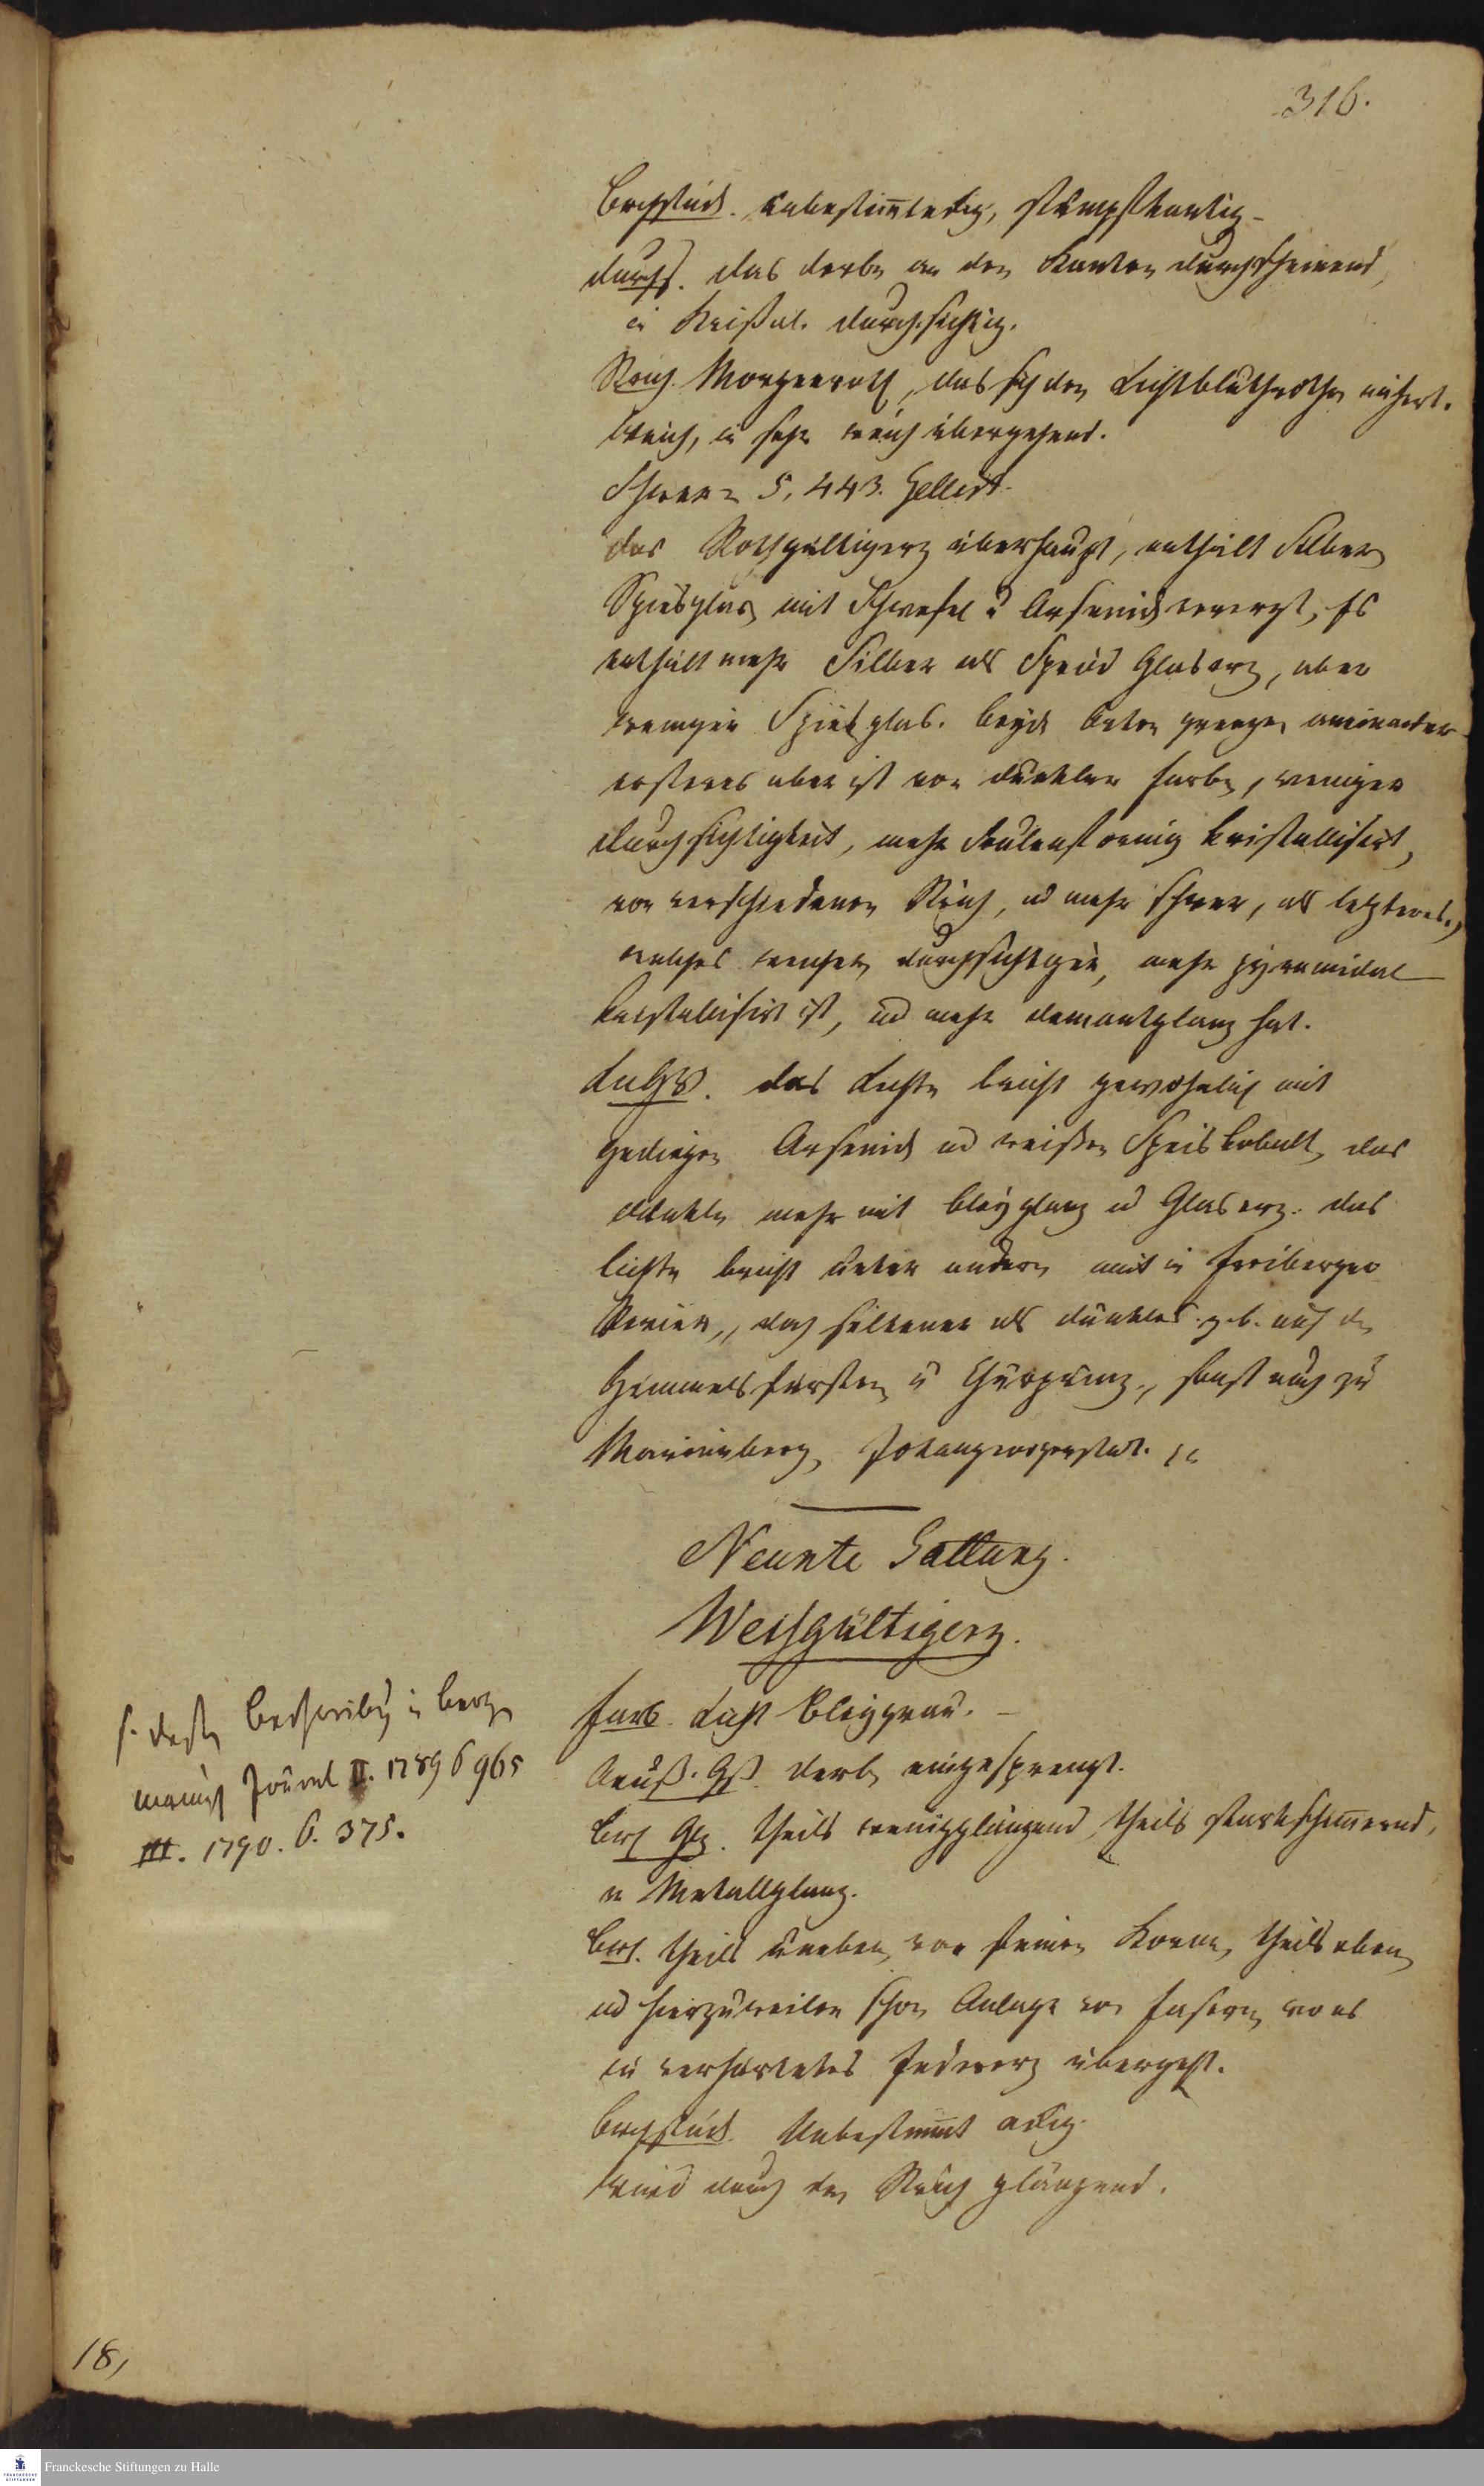 316.
Bruchstück. unbestimteckig, stumpfkantig
durchs. das derbe an den Kanten durchscheinend,
in Kristal. durchsichtig.
Strich. Morgenroth, das sich den Lichtblutrothen nähert.
Weich, in sehr weich übergehend.
Schwere 5,443. Gellert.
das Rothgültigerz überhaupt, enthält Silber
Spiesglas mit Schwefel u Arsenick vererzt, Es
enthält mehr Silber als Spröd Glaserz, aber
weniger Spiesglas. beyde Arten grenzen aneinander
ersteres aber ist von dunkler Farbe, weniger
durchsichtigkeit, mehr säulenförmig kristallisirt,
von verschiedenen Strich, ud mehr schwer, als letzteres,
welches weicher, durchsichtger, mehr pyramidal
kristallisirt ist, ud mehr demantglanz hat.
das Lichte bricht gewöhnlich mit
gediegen Arsenick ud weißen Speiskobalt, das
dunkle mehr mit bleyglanz ud Glaserz. das
lichte bricht unter andern mit in Freiberger
Revier, doch seltener als dunkles z. b. auf den
Himmelsfürsten u Churprinz, sonst auch zu
Marienberg, Johangeorgenstadt.
Neunte Gattung.
Weisgültigerz.
s. dessen Beschreibg in Berg
mänisch Journal II. 1789 S 965
III. 1790. S. 375.
Farb. Licht bleygrau.
Aeuß. Gst. derb, eingesprengt.
Bruch Glz. theils wenigglänzend, theils starkschimernd,
v Metallglanz.
Bruch. theils uneben, von feinen Korne, theils eben,
ud hierzuweilen schon Anlage von Fasern, wo es
in verhärtetes Federerz übergeht.
Bruchstück. Unbestimmt eckig.
wird durch den Strich glänzend.
18,
Franckesche Stiftungen zu Halle